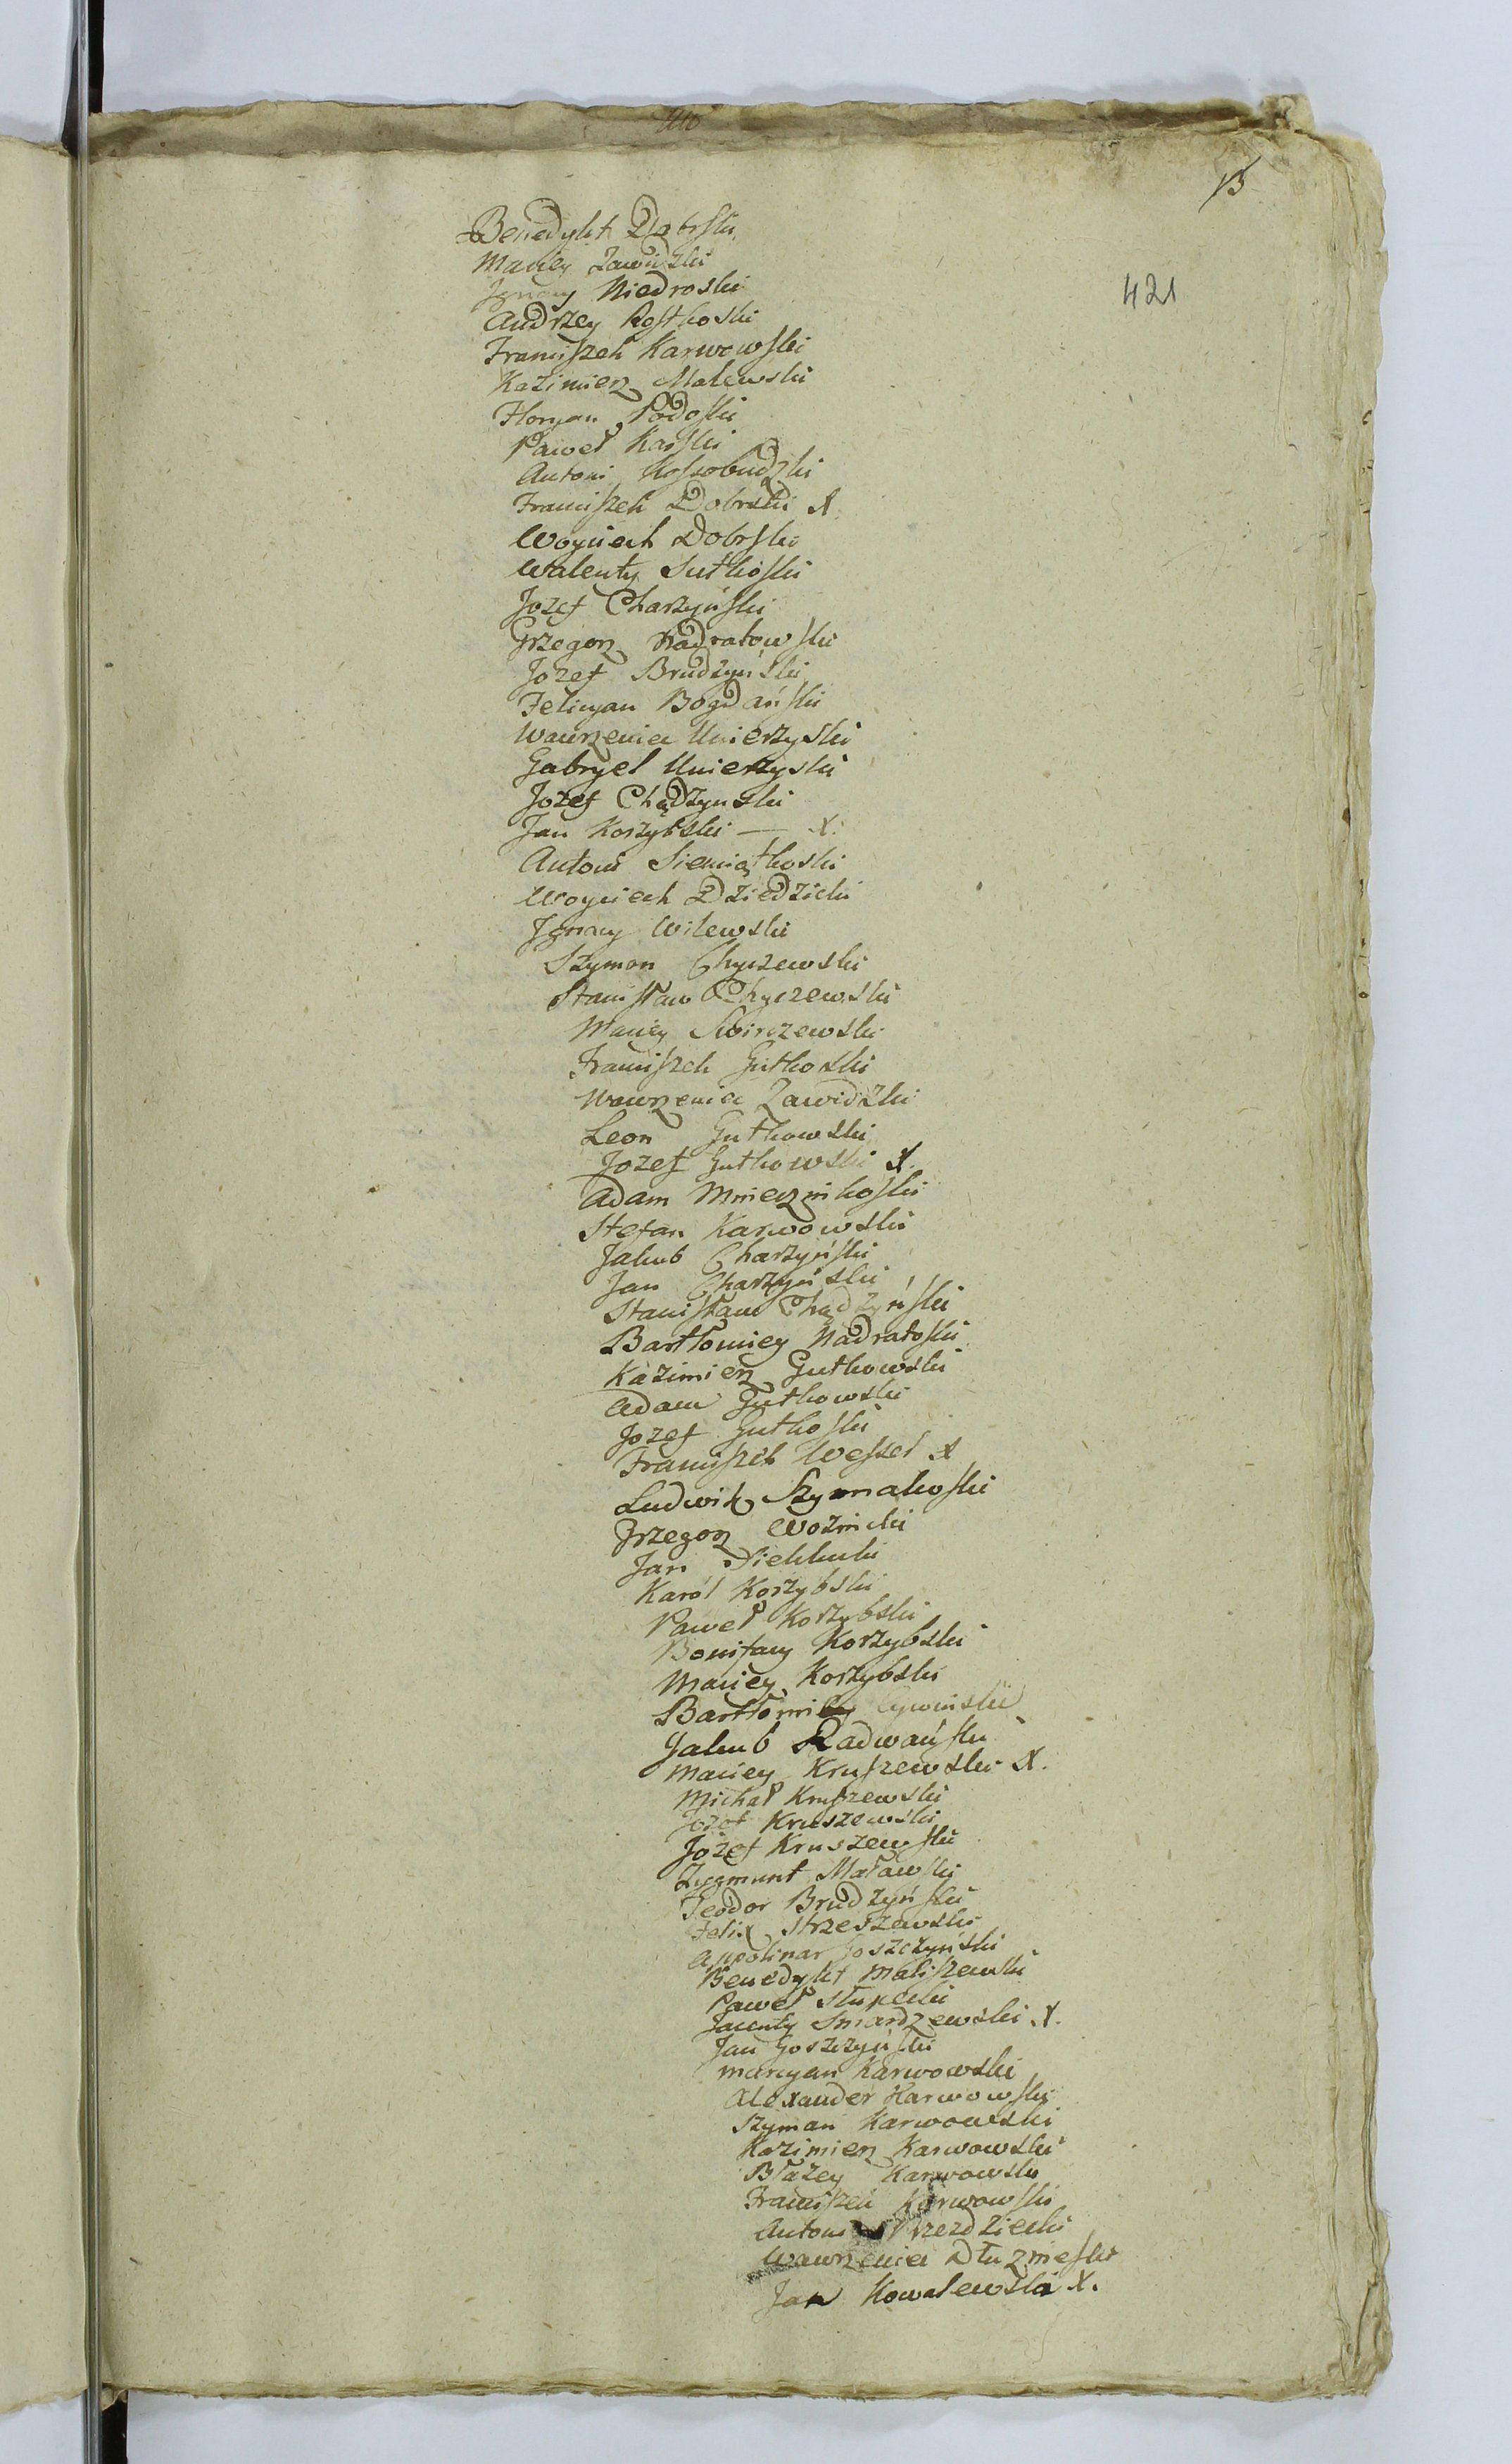 13
421
Benedykt Dobrski
Maciey Zawidzki
Jgnacy Niedroski
Andrzey Rostkoski
Franciszek Karwowski
Kazimierz Malewski
Floryan Podoski
Paweł Karski
Antoni Kossobudzki
Franciszek Dobrski X
Woyciech Dobrski
Walenty Sutkoski
Jozef Charzyński
Grzegorz Nadratowski
Jozef Brudzyński
Felicyan Bogdański
Wawrzeniec Unierzyski
Gabryel Unierzyski
Jozef Chądzynski
Jan Korzybski — X.
Antoni Siemiątkoski
Woyciech Dziedzicki
Jgnacy Wilewski
Szymon Chyczewski
Stanisław Chyczewski
Maciey Swirczewski
Franciszek Gutkoski
Wawrzeniec Zawidzki
Leon Gutkowski
Jozef Gutkowski X.
Adam Mniecznikoski
Stefan Karwowski
Jakub Charzyński
Jan Charzyński
Stanisław Chądzyński
Bartłomiey Nadratoski
Kazimierz Gutkowski
Adam Gutkowski
Jozef Gutkoski
Franciszek Wessel X
Ludwik Szymakoski
Grzegorz Woznicki
Jan
Karol Korzybski
Paweł Korzybski
Bonifacy Korzybski
Maciey Korzybski
Bartłomiey Cywinski
Jakub Radwański
Maciey Kruszewski X.
Michał Kruszewski
Jozef Kruszewski
Jozef Kruszewski
Zygmunt Maławski
Teodor Brudzyński
Felix Strzeszewski
Appolinar Goszczyński
Benedykt Maliszewski
Paweł Słupecki
Jacenty Smardzewski X.
Jan Goszczyński
Marcyan Karwowski
Alexander Karwowski
Szyman Karwowski
Kazimierz Karwowski
Błażey Karwowski
Franciszek Karwowski
Antoni Przezdziecki
Wawrzeniec Dłuznieski
Jan Kowalewski X.